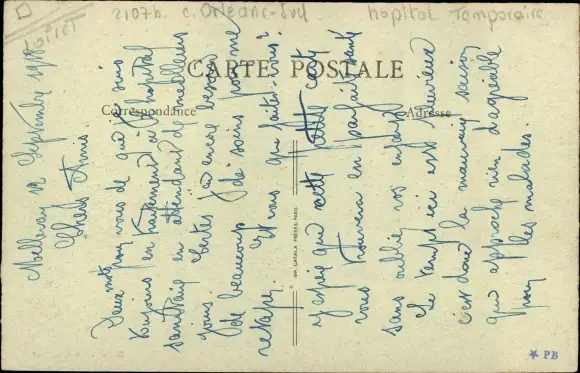 Loiret
2107h. c. Orléans-Sud
hopital Temporaire
CARTE POSTALE
Correspondance
Adresse
12 Septembre 1918
Chers Amis
Deux mots pour vous de que je suis
toujours en traitement à l'hopital
sanitaire en attendant de meilleurs
jours. Certes j'ai encore besoin
de beaucoup de soins pour me
retape. Et vous que faites-vous?
J'espère que cette petite carte
vous trouvera en parfait santé
sans oublié vos enfants
Le temps ici est pluvieux
c'est donc la mauvaise saison
qui approche rien d'agréable
pour les malades.
IMP. CATALA FRÈRES, PARIS
★ PB